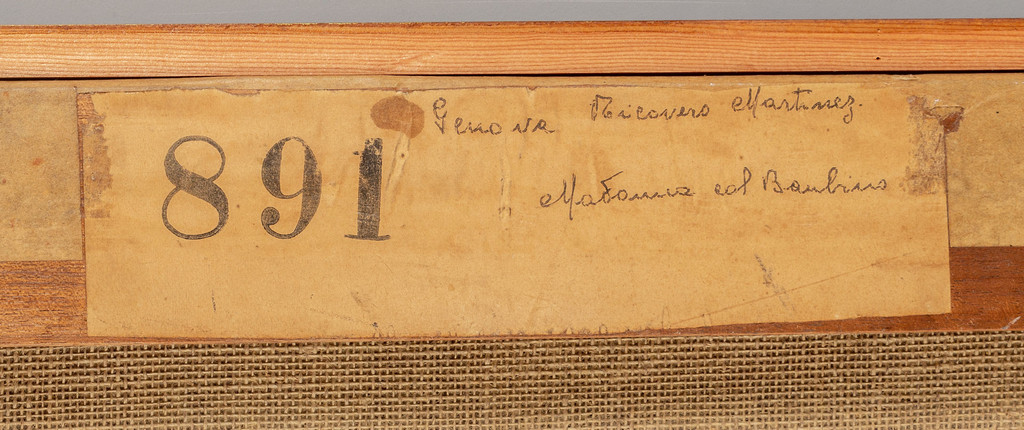 891
Genova Ricovero Martinez.
Madonna col Bambino